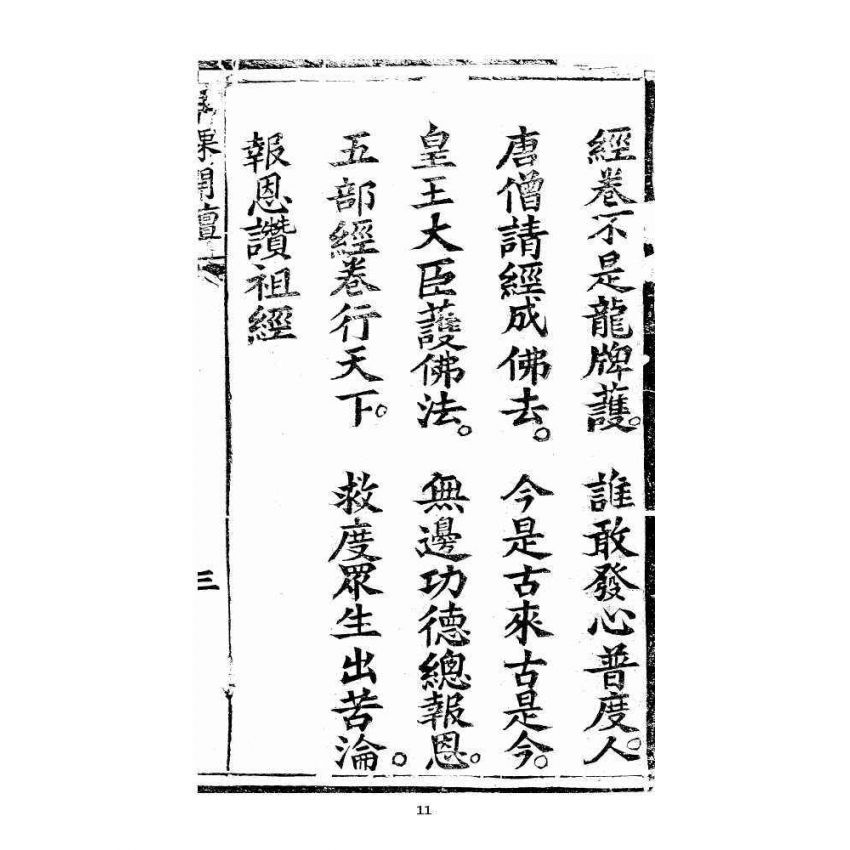 經卷不是龍牌護。誰敢發心普度人。
唐僧請經成佛去。今是古來古是今。
皇王大臣護佛法。無邊功德總報恩。
五部經卷行天下。救度眾生出苦淪。
報恩讚祖經
課開壇
三
11